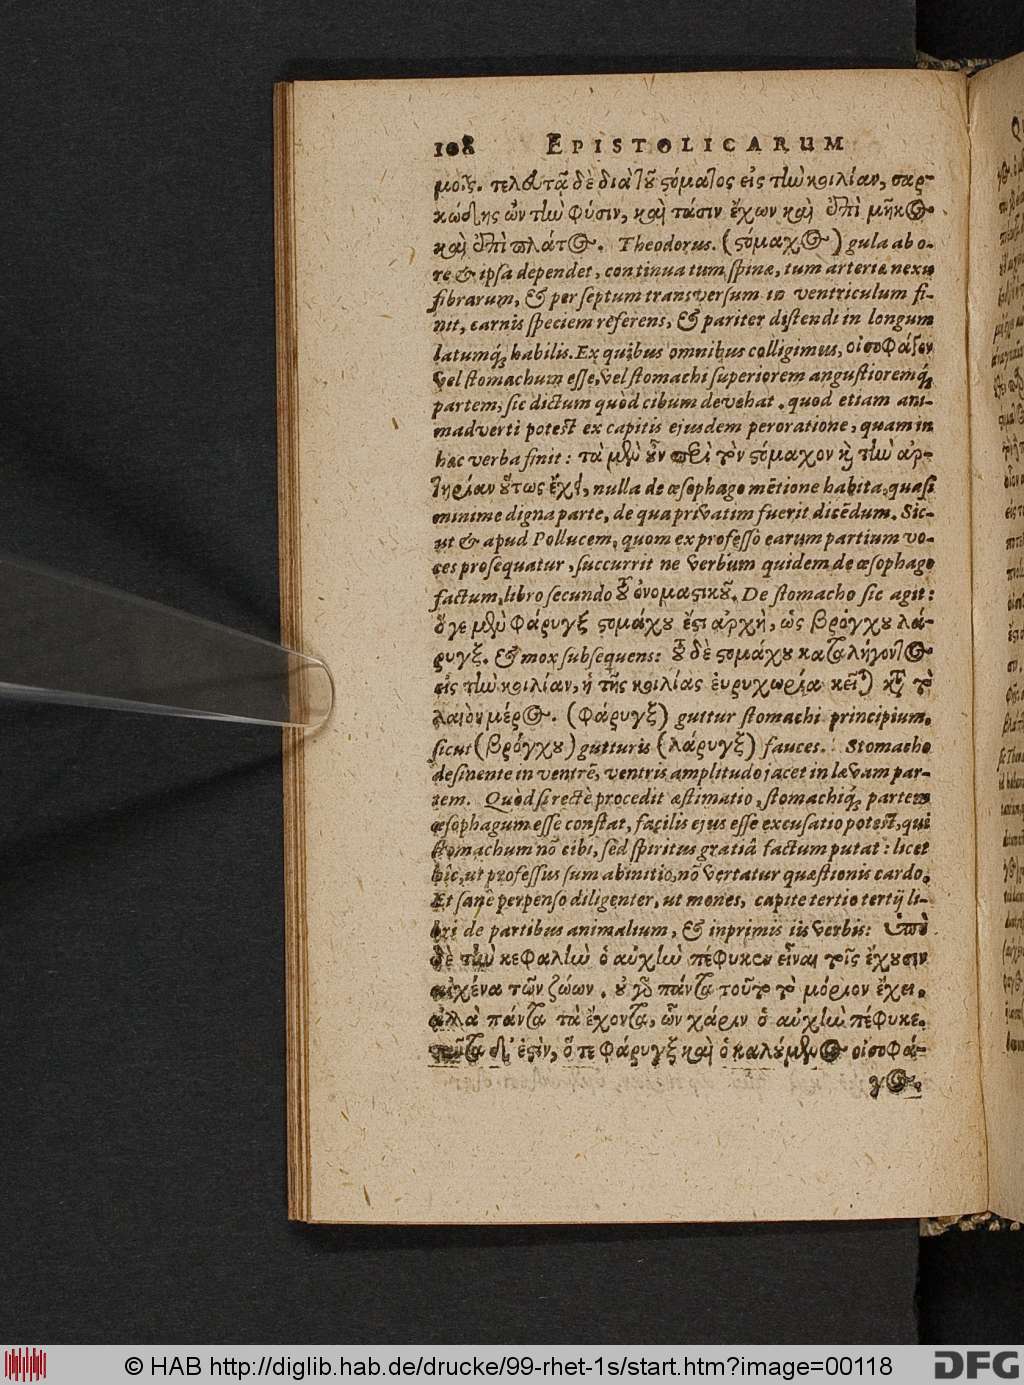 108 EPISTOLICARUM
μοῖς. τελευτᾷ δὲ διὰ τοῦ στόματος εἰς τὴν κοιλίαν, σαρ-
κώδης ὢν τὴν φύσιν, καὶ τάσιν ἔχων καὶ ἐπὶ μῆκος
καὶ ἐπὶ πλάτος. Theodorus. (στόμαχος) gula ab o-
re & ipsa dependet, continua tum spinæ, tum arteriæ nexu
fibrarum, & per septum transversum in ventriculum fi-
nit, carnis speciem referens, & pariter distendi in longum
latumq́; habilis. Ex quibus omnibus colligimus, οἰσοφάγον
vel stomachum esse, vel stomachi superiorem angustioremq́;
partem, sic dictum quòd cibum devehat. quod etiam ani-
madverti potest ex capitis ejusdem peroratione, quam in
hæc verba finit: τὰ μὲν οὖν περὶ τὸν στόμαχον καὶ τὴν ἀρ-
τηρίαν οὕτως ἔχει, nulla de œsophago mētione habita, quasi
minime digna parte, de qua privatim fuerit dicēdum. Sic-
ut & apud Pollucem, quom ex professo earum partium vo-
ces prosequatur, succurrit ne verbum quidem de œsophago
factum, libro secundo τοῦ ὀνομαστικοῦ. De stomacho sic agit:
ὅγε μὲν φάρυγξ στομάχου ἔστι ἀρχὴ, ὡς βρόγχου λά-
ρυγξ. & mox subsequens: τοῦ δὲ στομάχου καταλήγοντος
εἰς τὴν κοιλίαν, ἡ τῆς κοιλίας ἐυρυχωρία κεῖται κατὰ τὸ
λαιὸν μέρος. (φάρυγξ) guttur stomachi principium,
sicut (βρόγχου) gutturis (λάρυγξ) fauces. Stomacho
desinente in ventrē, ventris amplitudo jacet in lævam par-
tem. Quòd si rectè procedit æstimatio, stomachiq́; partem
œsophagum esse constat, facilis ejus esse excusatio potest, qui
stomachum nō cibi, sed spiritus gratiâ factum putat: licet
hîc, ut professus sum ab initio, nō vertatur quæstionis cardo.
Et sanè perpenso diligenter, ut mones, capite tertio tertij li-
bri de partibus animalium, & inprimis iis verbis: ὑπὸ
δὲ τὴν κεφαλὴν ὁ αὐχὴν πέφυκεν εἶναι τοῖς ἔχουσιν
αὐχένα τῶν ζώων. οὐ γὰρ πάντα τοῦτο τὸ μόριον ἔχει.
ἀλλὰ πάντα τὰ ἔχοντα, ὧν χάριν ὁ αὐχὴν πέφυκε.
ταῦτα δ' ἐστὶν, ὅ τε φάρυγξ καὶ ὁ καλούμενος οἰσοφά-
γος.
© HAB http://diglib.hab.de/drucke/99-rhet-1s/start.htm?image=00118
DFG